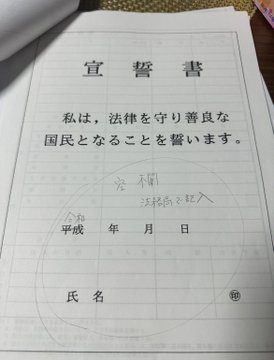 宣誓書
私は，法律を守り善良な
国民となることを誓います。
空欄
法務局で記入
令和
平成　年　月　日
氏名　㊞